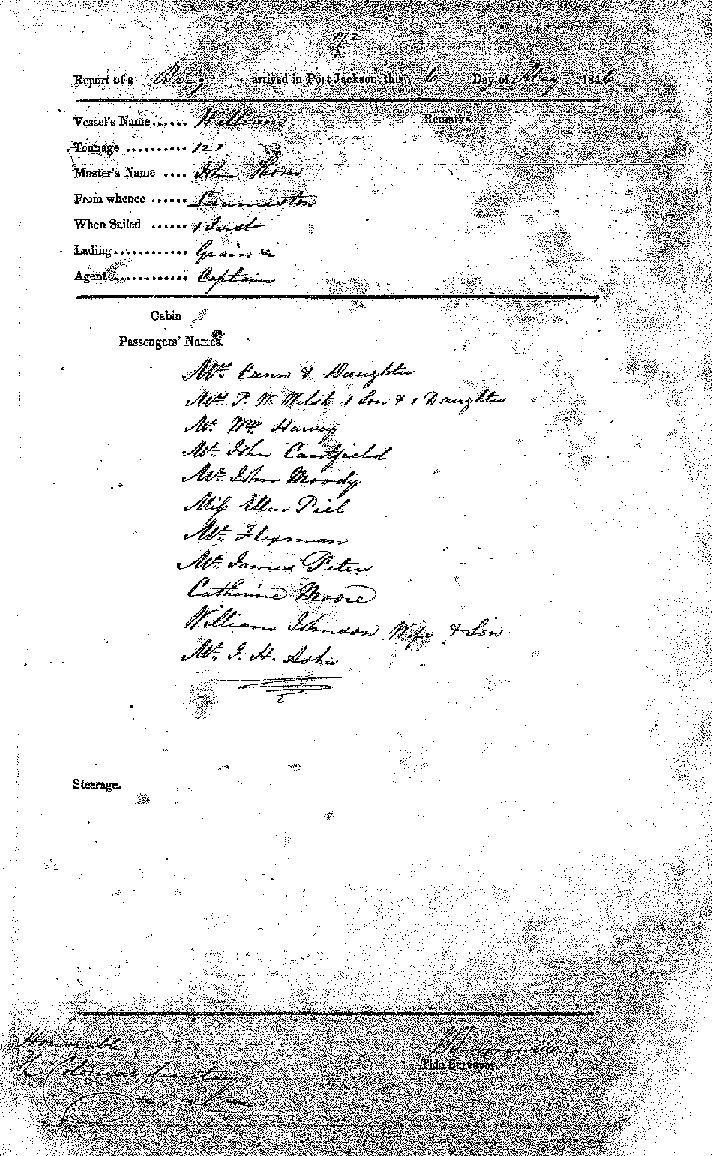 Report of a Brig arrived in Port Jackson, this 6 Day of May 1846
Vessel's Name...... William
Remarks.
Tonnage ..........
Master's Name .... John
From whence ...... Launceston
When Sailed ...... 1 Inst
Lading............ Grain &c
Agent............. Captain
Cabin
Passengers' Names.
Mrs. Cann & Daughter
Mrs. P. W. Welsh 1 Son & 1 Daughter
Mr. Wm. Harvey
Mr. John Caulfield
Mr. John Moody
Miss Ellen Piel
Mr. Flexman
Mr. James Peters
Catherine Moore
William Johnson Wife & Son
Mr. J. H.
Steerage.
Tide Surveyor